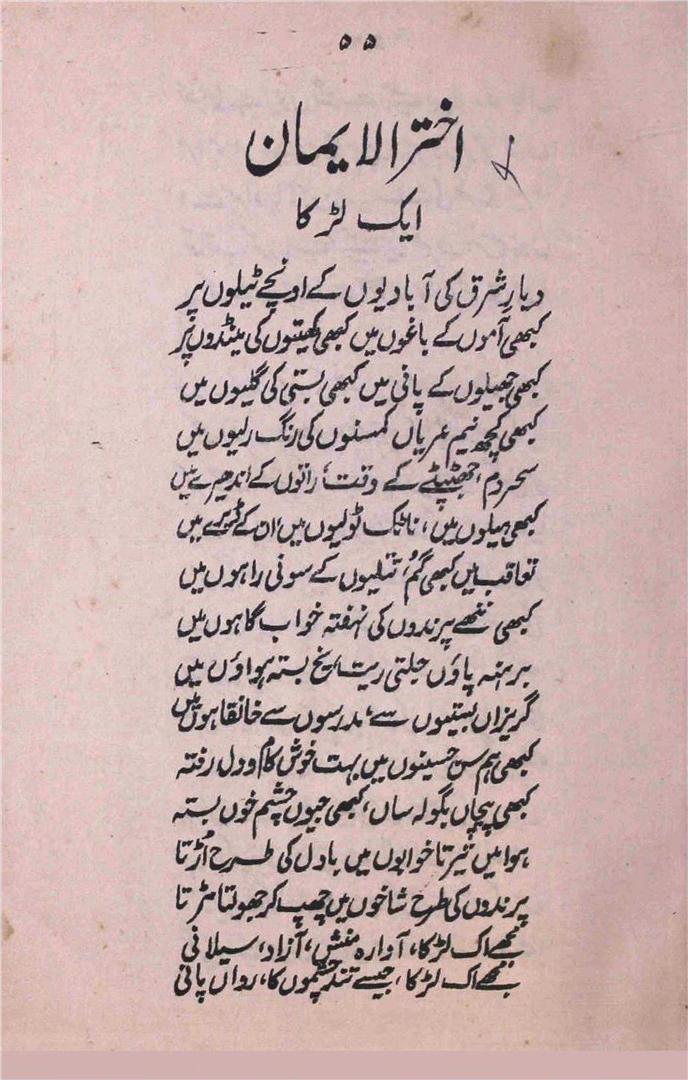 ۵۵
اختر الایمان
ایک لڑکا
دیارِ شرق کی آبادیوں کے اونچے ٹیلوں پر
کبھی آموں کے باغوں میں کبھی کھیتوں کی مینڈوں پر
کبھی جھیلوں کے پانی میں کبھی بستی کی گلیوں میں
کبھی کچھ نیم عریاں کمسنوں کی رنگ رلیوں میں
سحردم، جھٹپٹے کے وقت، راتوں کے اندھیرے میں
کبھی میلوں میں، ناٹک ٹولیوں میں، ان کے ڈیرے میں
تعاقب میں کبھی گم، تتلیوں کے سونی راہوں میں
کبھی ننھے پرندوں کی نہفتہ خواب گاہوں میں
برہنہ پاؤں جلتی ریت یخ بستہ ہواؤں میں
گریزاں بستیوں سے، مدرسوں سے خانقاہوں میں
کبھی ہم سن حسینوں میں بہت خوش کام و دل رفتہ
کبھی پیچاں بگولہ ساں، کبھی جیوں چشم خوں بستہ
ہوا میں تیرتا خوابوں میں بادل کی طرح اُڑتا
پرندوں کی طرح شاخوں میں چھپ کر جھولتا مڑتا
مجھے اک لڑکا، آوارہ منش، آزاد، سیلانی
مجھے اک لڑکا، جیسے تند چشموں کا، رواں پانی